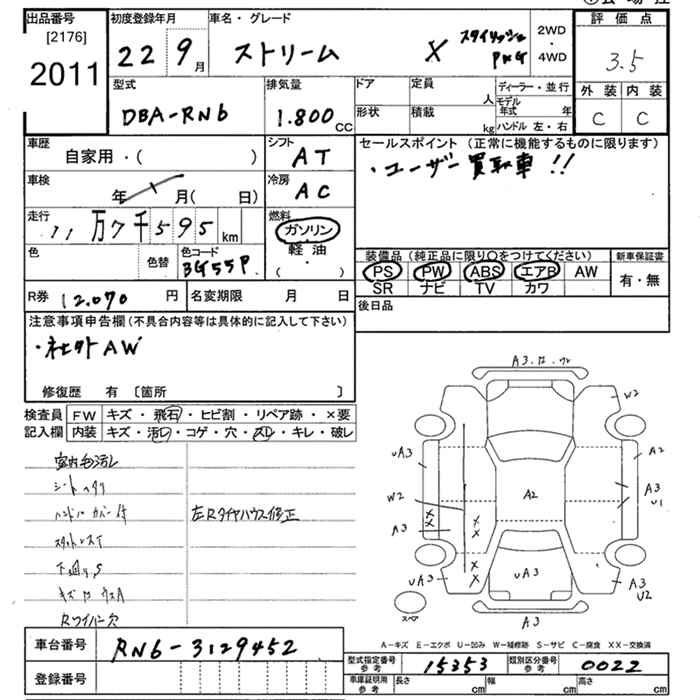 出品番号 初度登録年月 車名・グレード 評価点
[2176]
2011 22 9月 ストリーム X スタイリッシュ 2WD・4WD 3.5
型式 排気量 ドア 定員 ディーラー・並行 外装 内装
DBA-RN6 1.800cc 形状 積載 人 kg モデル年式 年 ハンドル 左・右 C C
車歴 シフト セールスポイント (正常に機能するものに限ります)
自家用・( ) AT ・ユーザー買取車!!
車検 冷房
年 月( 日) AC
走行 燃料
11万7千595km ガソリン・軽油・( )
色 色替 色コード 装備品 (純正品に限り○をつけてください) 新車保証書
BG55P PS PW ABS エアB AW 有・無
SR ナビ TV カワ
R券 12.070円 名変期限 月 日 後日品
注意事項申告欄(不具合内容等は具体的に記入して下さい)
・社外AW
修復歴 有 〔箇所 〕
検査員 FW キズ・飛石・ヒビ割・リペア跡・×要
記入欄 内装 キズ・汚レ・コゲ・穴・スレ・キレ・破レ
室内毛汚レ
シートヘタリ
ハンドルカバー付 左Rタイヤハウス修正
下廻りS
Rワイパー欠
W2
UA3 A2
W2 A2 A3 U1
A3
UA3 UA3 A3 U2
スペア A3
A-キズ E-エクボ U-凹み W-補修跡 S-サビ C-腐食 XX-交換済
車台番号 RN6-3129452
型式指定番号 参考 15353 類別区分番号 参考 0022
登録番号 車庫証明用 参考 長さ cm 幅 cm 高さ cm